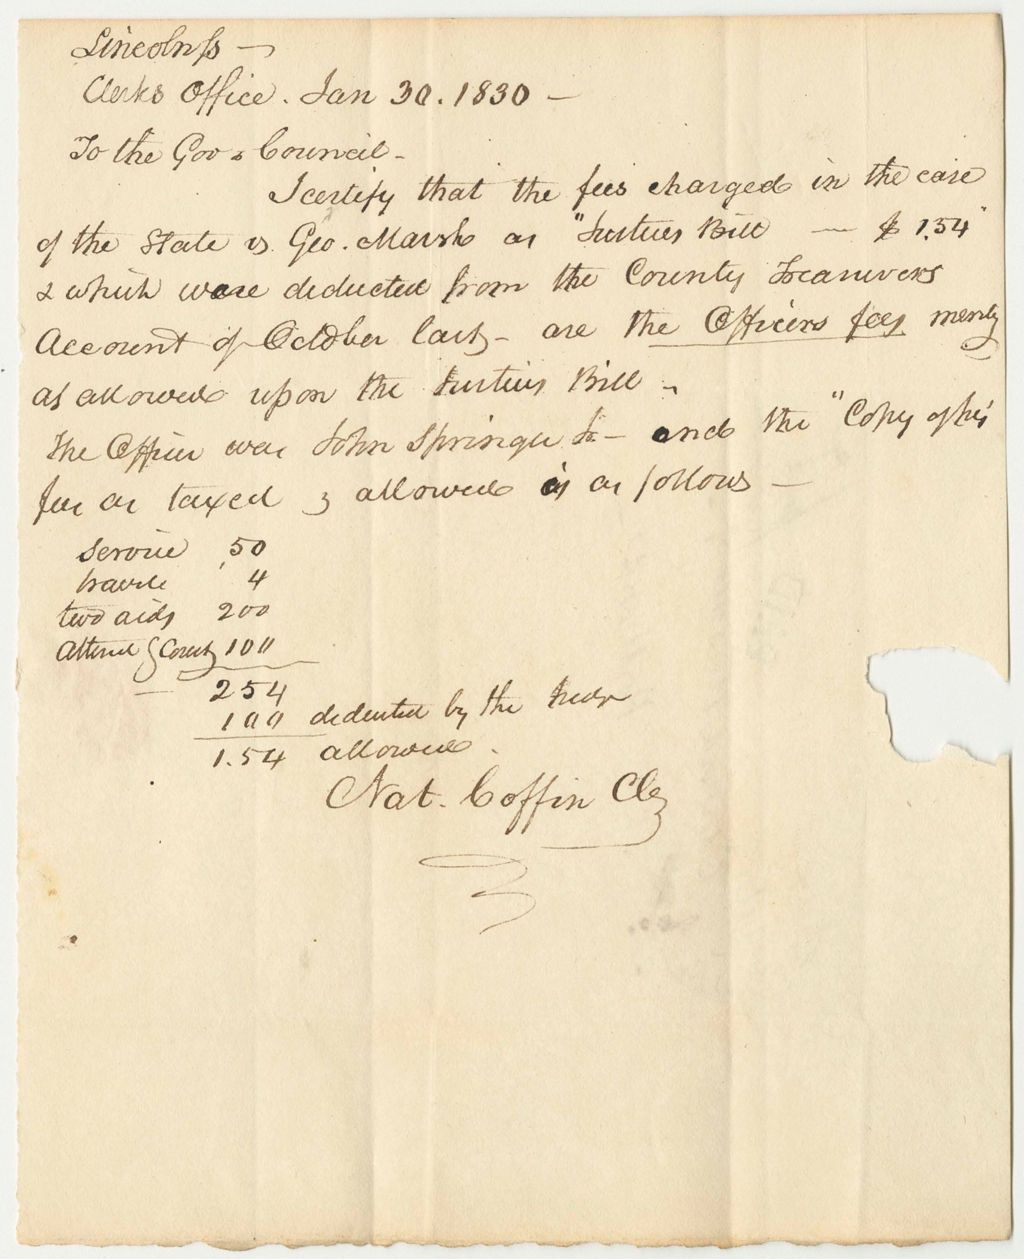 Lincoln ss —
Clerks Office. Jan 30. 1830 —
To the Gov & Council —
I certify that the fees charged in the case
of the State vs Geo. Marsh as "Justices Bill — $ 1,54"
& which were deducted from the County Treasurers
Account of October last, — are the Officers fees merely
as allowed upon the Justices Bill —
The Officer was John Springer Jr — and the "Copy of his
fees as taxed & allowed is as follows —
Service ,50
travel 4
two aids 200
Attend g Court 100
254
100 deducted by the
1.54 allowed.
Nat. Coffin Clk